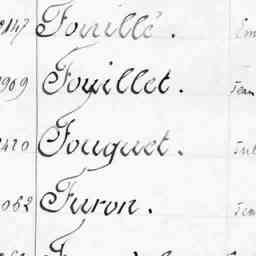 147 Fouillé.
909 Fouillet. Jean
420 Fouquet. Jul
062 Furon. Jean